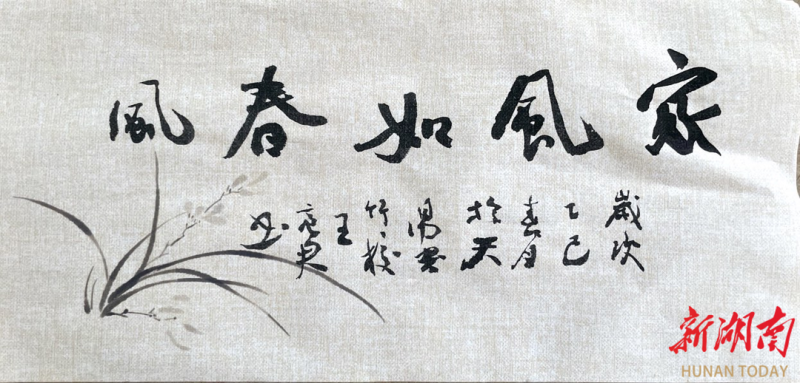 家風如春風
歲次
乙巳
春月
於天
竹
王
新湖南
HUNAN TODAY